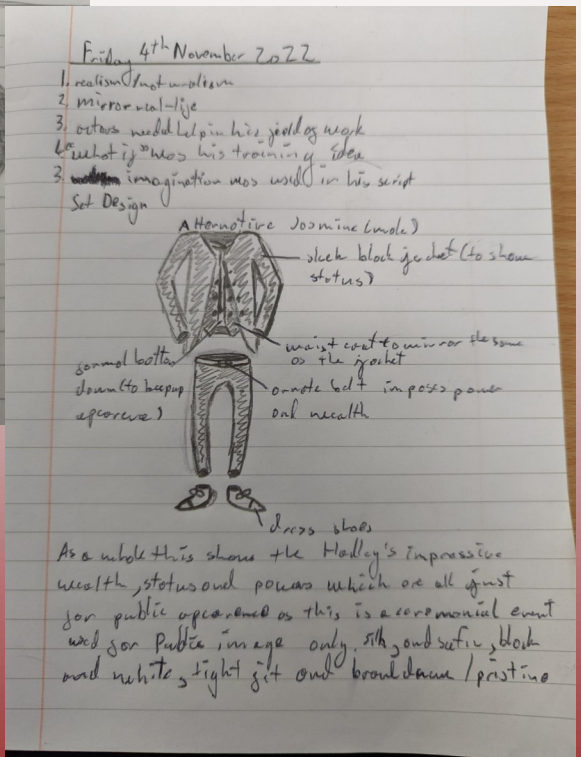 Friday 4th November 2022
1. realism/naturalism
2. mirror real-life
3. actors needed help in his field of work
4. "what if" was his training idea
3. imagination was used in his script
Set Design
Alternative Jasmine (male)
sleek black jacket (to show
status)
waist coat to mirror the same
as the jacket
formal button
down (to keep up
apearence)
ornate belt imposes power
and wealth
dress shoes
As a whole this shows the Hadley's impressive
wealth, status and powers which are all just
for public apearence as this is a ceremonial event
used for Public image only. silk, and satin, black
and white, tight fit and brand new/pristine